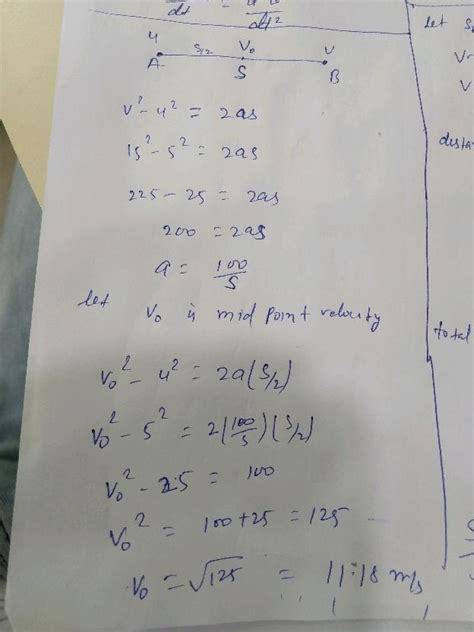 dt dt²
let
u S/2 V₀ V
A S B
V² - u² = 2as
15² - 5² = 2as
225 - 25 = 2as
200 = 2as
a = 100/S
let V₀ is mid point velouty
V₀² - u² = 2a(S/2)
V₀² - 5² = 2(100/S)(S/2)
V₀² - 25 = 100
V₀² = 100+25 = 125
V₀ = √125 = 11.18 m/s
V
V
dista
total